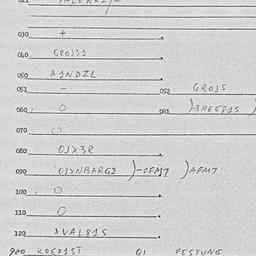 030 +
040 GROJS1
050 A1NDZL
051 – 052 GROJS
060 O 061 )-BREG815 )
070 O
080 OJX3R
090 OJXNBARG2 )-OFM7 )AFM7
100 O
110 O
120 XVAL815
900 KOEDIST Q1 FESTUNG